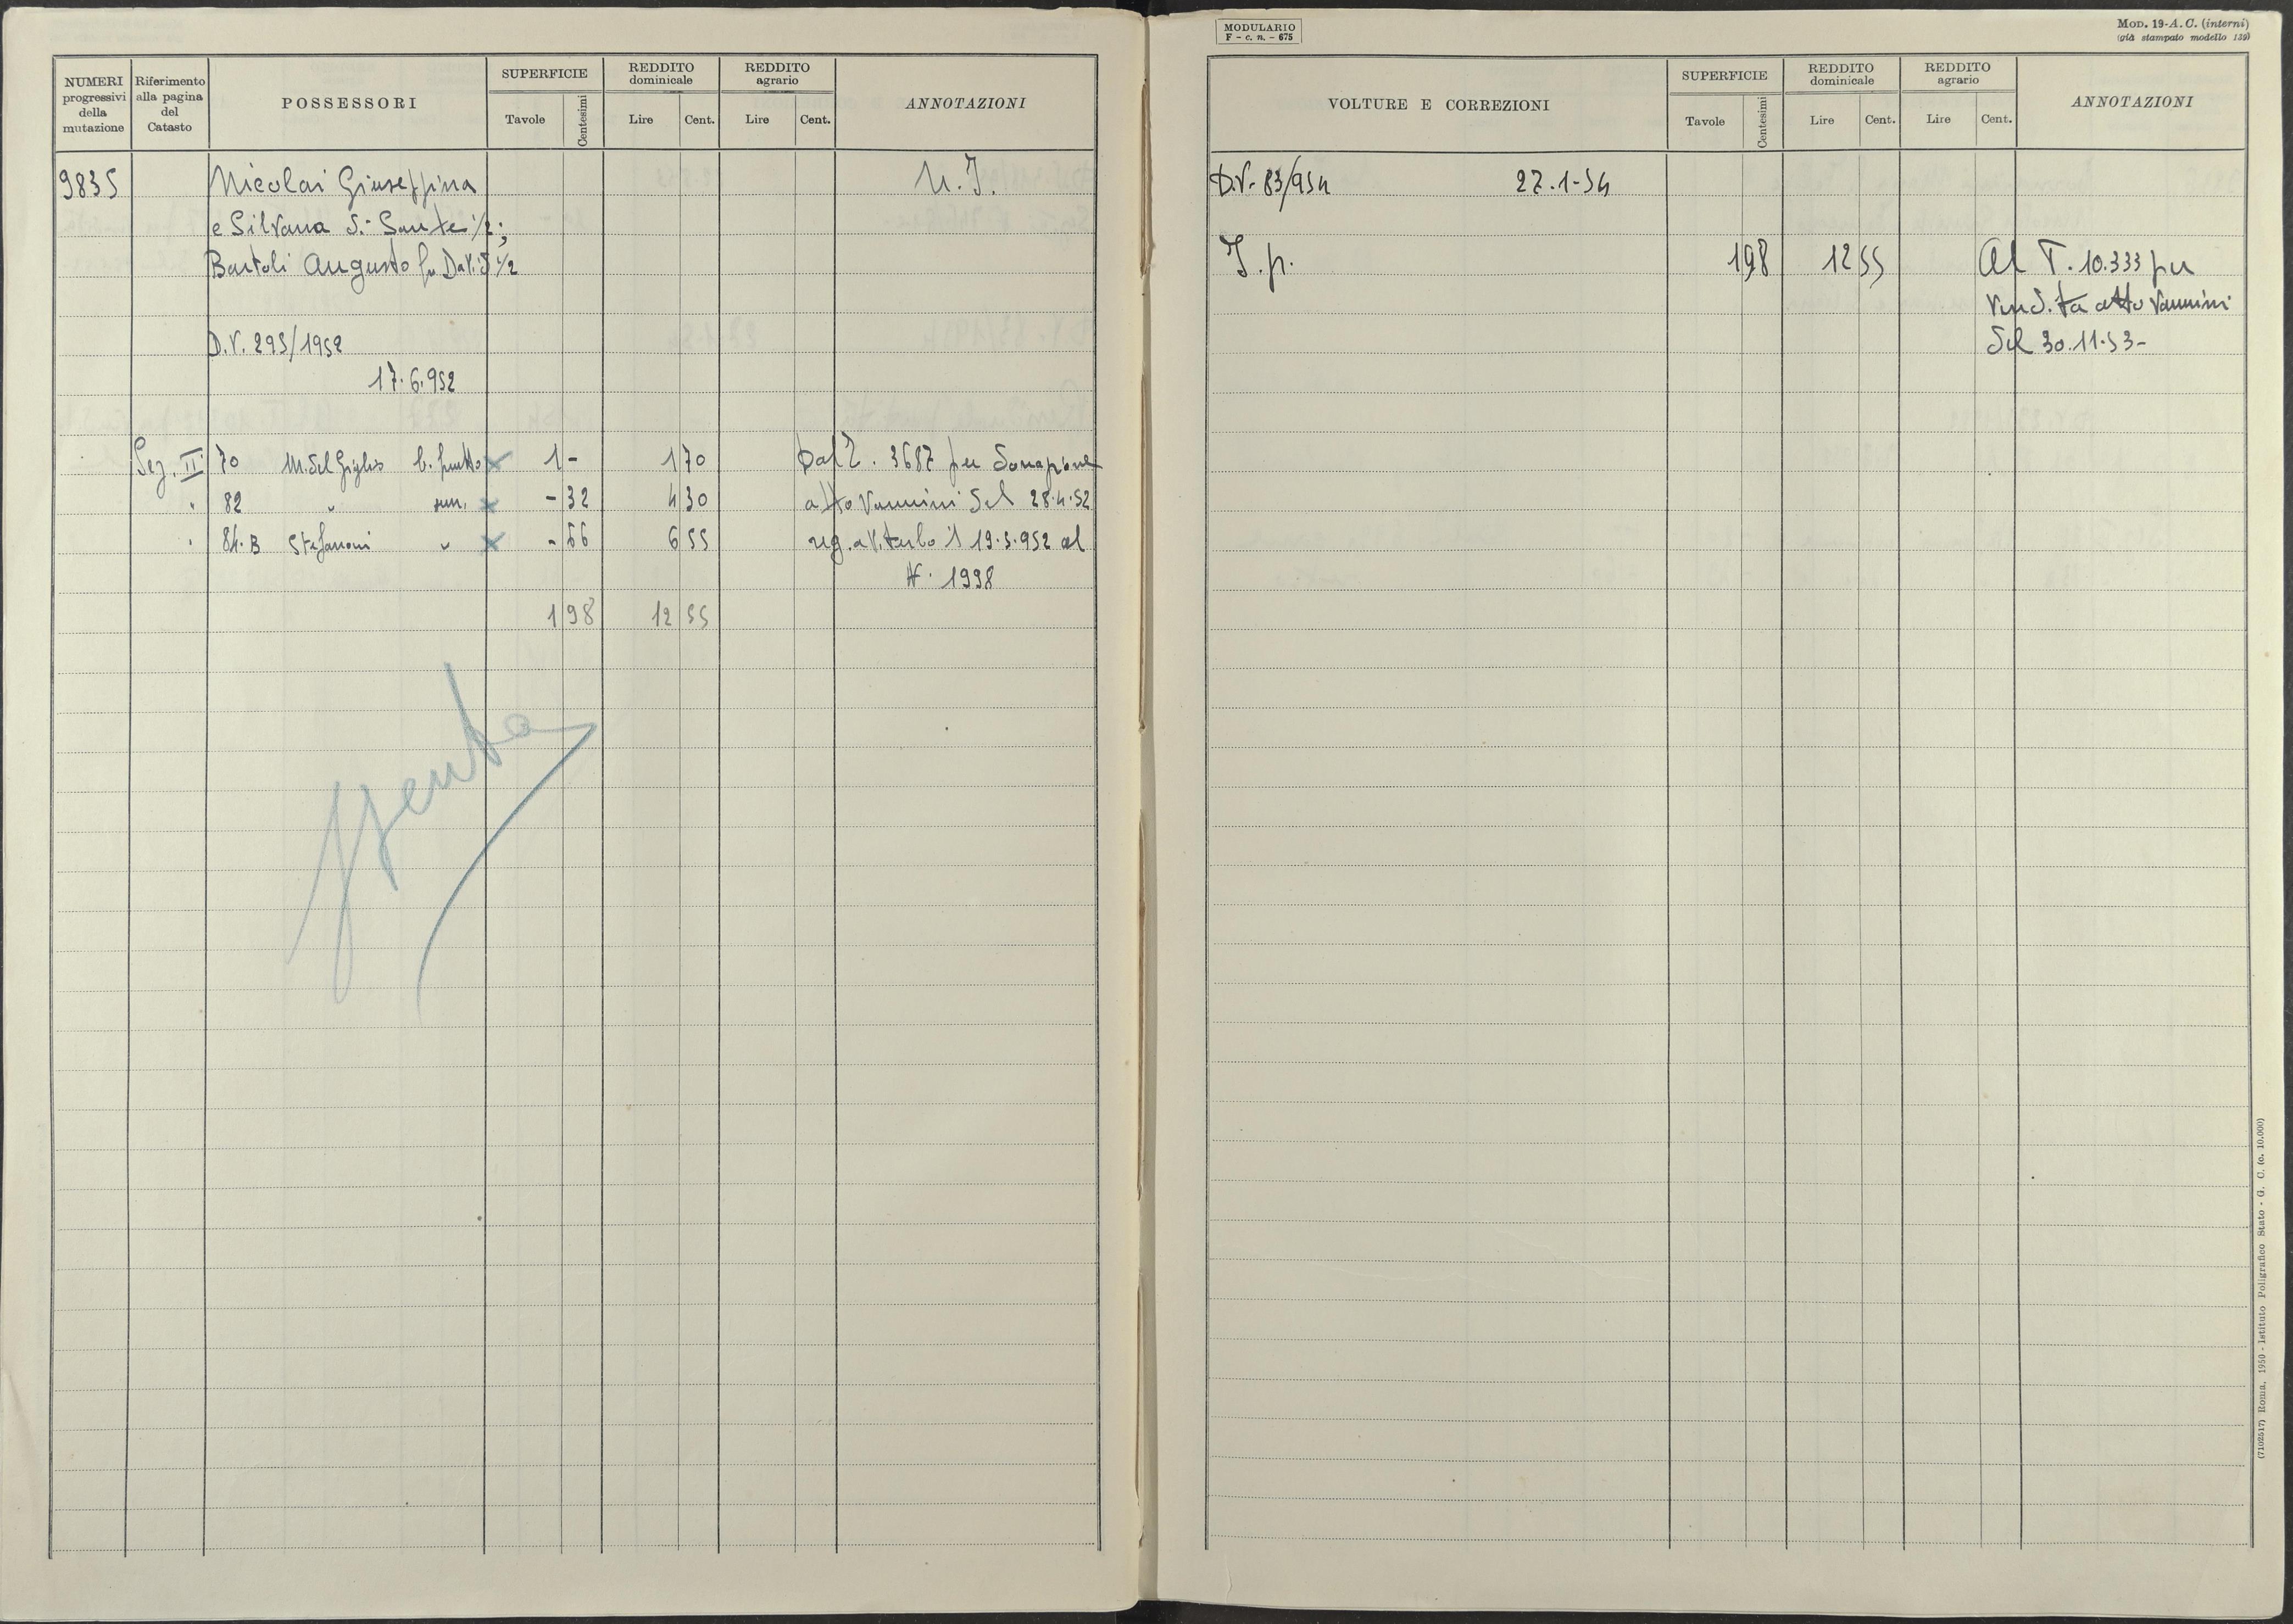 NUMERI progressivi della mutazione
Riferimento alla pagina del Catasto
POSSESSORI
SUPERFICIE
Tavole
Centesimi
REDDITO dominicale
Lire
Cent.
REDDITO agrario
Lire
Cent.
ANNOTAZIONI
9835
Nicolai Giuseppina
N.I.
e Silvana di Sante 1/2;
Bartoli Augusto fu David 1/2
D.V. 293/1952
17.6.952
Sez. II 70 M. del Giglio b. frutto 1 - 1 70 Dal 3687 per donazione
" 82 " sem. - 32 4 30 atto Vannini del 28.4.52
" 84.B Stefanoni " - 66 6 55 reg. a Viterbo il 19.5.952 al
N. 1998
1 98 12 55
Spenta
MODULARIO
F - c. n. - 675
MOD. 19-A. C. (interni)
(già stampato modello 139)
VOLTURE E CORREZIONI
SUPERFICIE
Tavole
Centesimi
REDDITO dominicale
Lire
Cent.
REDDITO agrario
Lire
Cent.
ANNOTAZIONI
D.V. 83/954 27.1.54
I.p. 1 98 12 55 Al T. 10.333 per
vendita atto Vannini
del 30.11.53-
(7102517) Roma, 1950 - Istituto Poligrafico Stato - G. C. (c. 10.000)